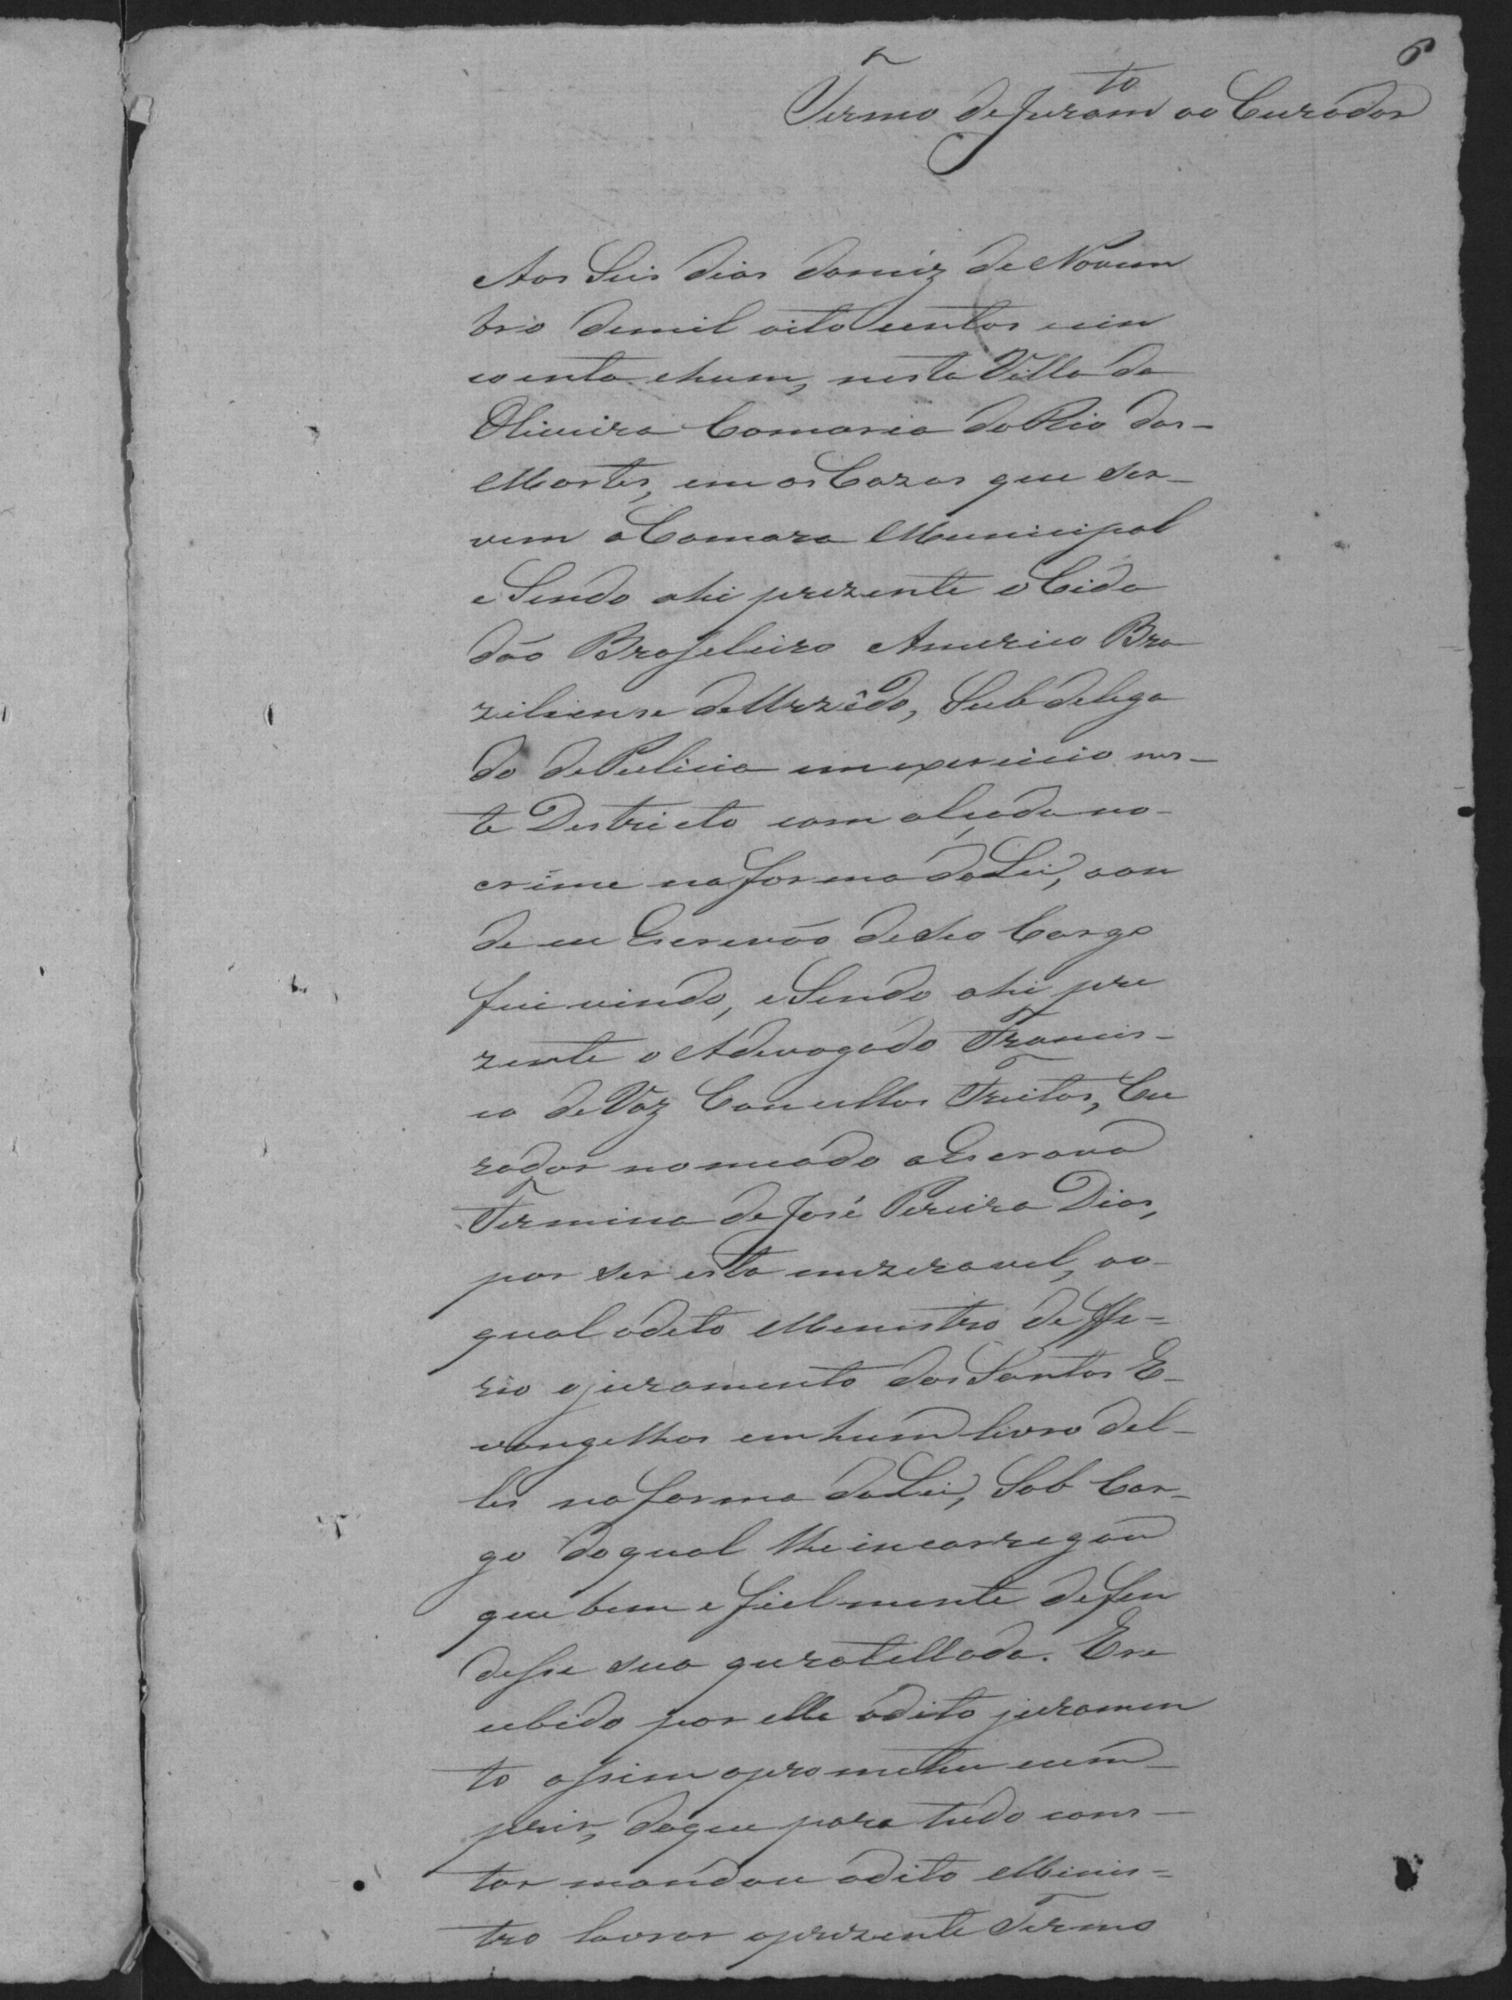 6
Termo de Juramto ao Curador
Aos Seis dias do mez de Novem
bro de mil oito centos e cin
coenta e hum, nesta Villa da
Oliveira Comarca do Rio das-
Mortes, em as Cazas que ser-
vem a Camara Municipal
e Sendo ahi prezente o Cida
dão Brasileiro Americo Bra
ziliense de Urzêdo, Sub delega
do de Pulicia em exercicio nes-
te Destricto com alçada no-
crime na forma da Lei, aon
de eu Escrevão de seo Cargo
fui vindo, e Sendo ahi pre
zente o Adevogado Francis-
co de Vaz Concellos Freitas, Cu
rador nomeado a Escrava
Fermina de José Pereira Dias,
por ser esta mizeravel, ao-
qual o dito Menistro deffe-
rio o juramento dos Santos E-
vangelhos em hum livro del-
les na forma da Lei, Sob Car-
go do qual lhe incarregou
que bem e fielmente defen
desse sua quratellada. E re
cebido por elle o dito juramen
to assim o prometeu cum-
prir, do que para tudo cons-
tar mandou o dito Minis-
tro lavrar o prezente Termo